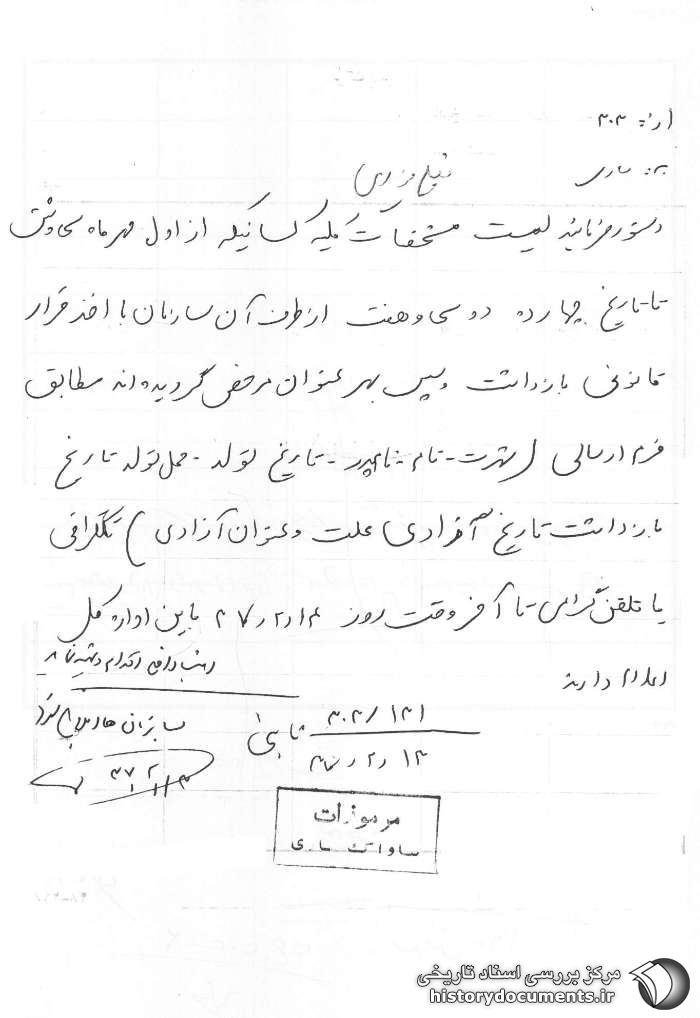 از: ۳۰۳
به: ساری
خیلی فوری
دستور فرمائید لیست مشخصات کلیه کسانیکه از اول مهر ماه سی و شش
تا تاریخ چهارده دو سی و هفت از طرف آن سازمان با اخذ قرار
قانونی بازداشت و سپس بهر عنوان مرخص گردیده‌اند مطابق
فرم ارسالی (شهرت - نام - نام پدر - تاریخ تولد - محل تولد تاریخ
بازداشت تاریخ آزادی علت و عنوان آزادی) تلگرافی
یا تلفن گرامی تا آخر وقت روز ۱۴ر۲ر۳۷ باین اداره کل
اعلام دارند
۳۰۳/۱۳۱
۱۳ر۲ر۳۷
ثابتی
اقدام
۳۷
مرموزات
ساواک ساری
مرکز بررسی اسناد تاریخی
historydocuments.ir